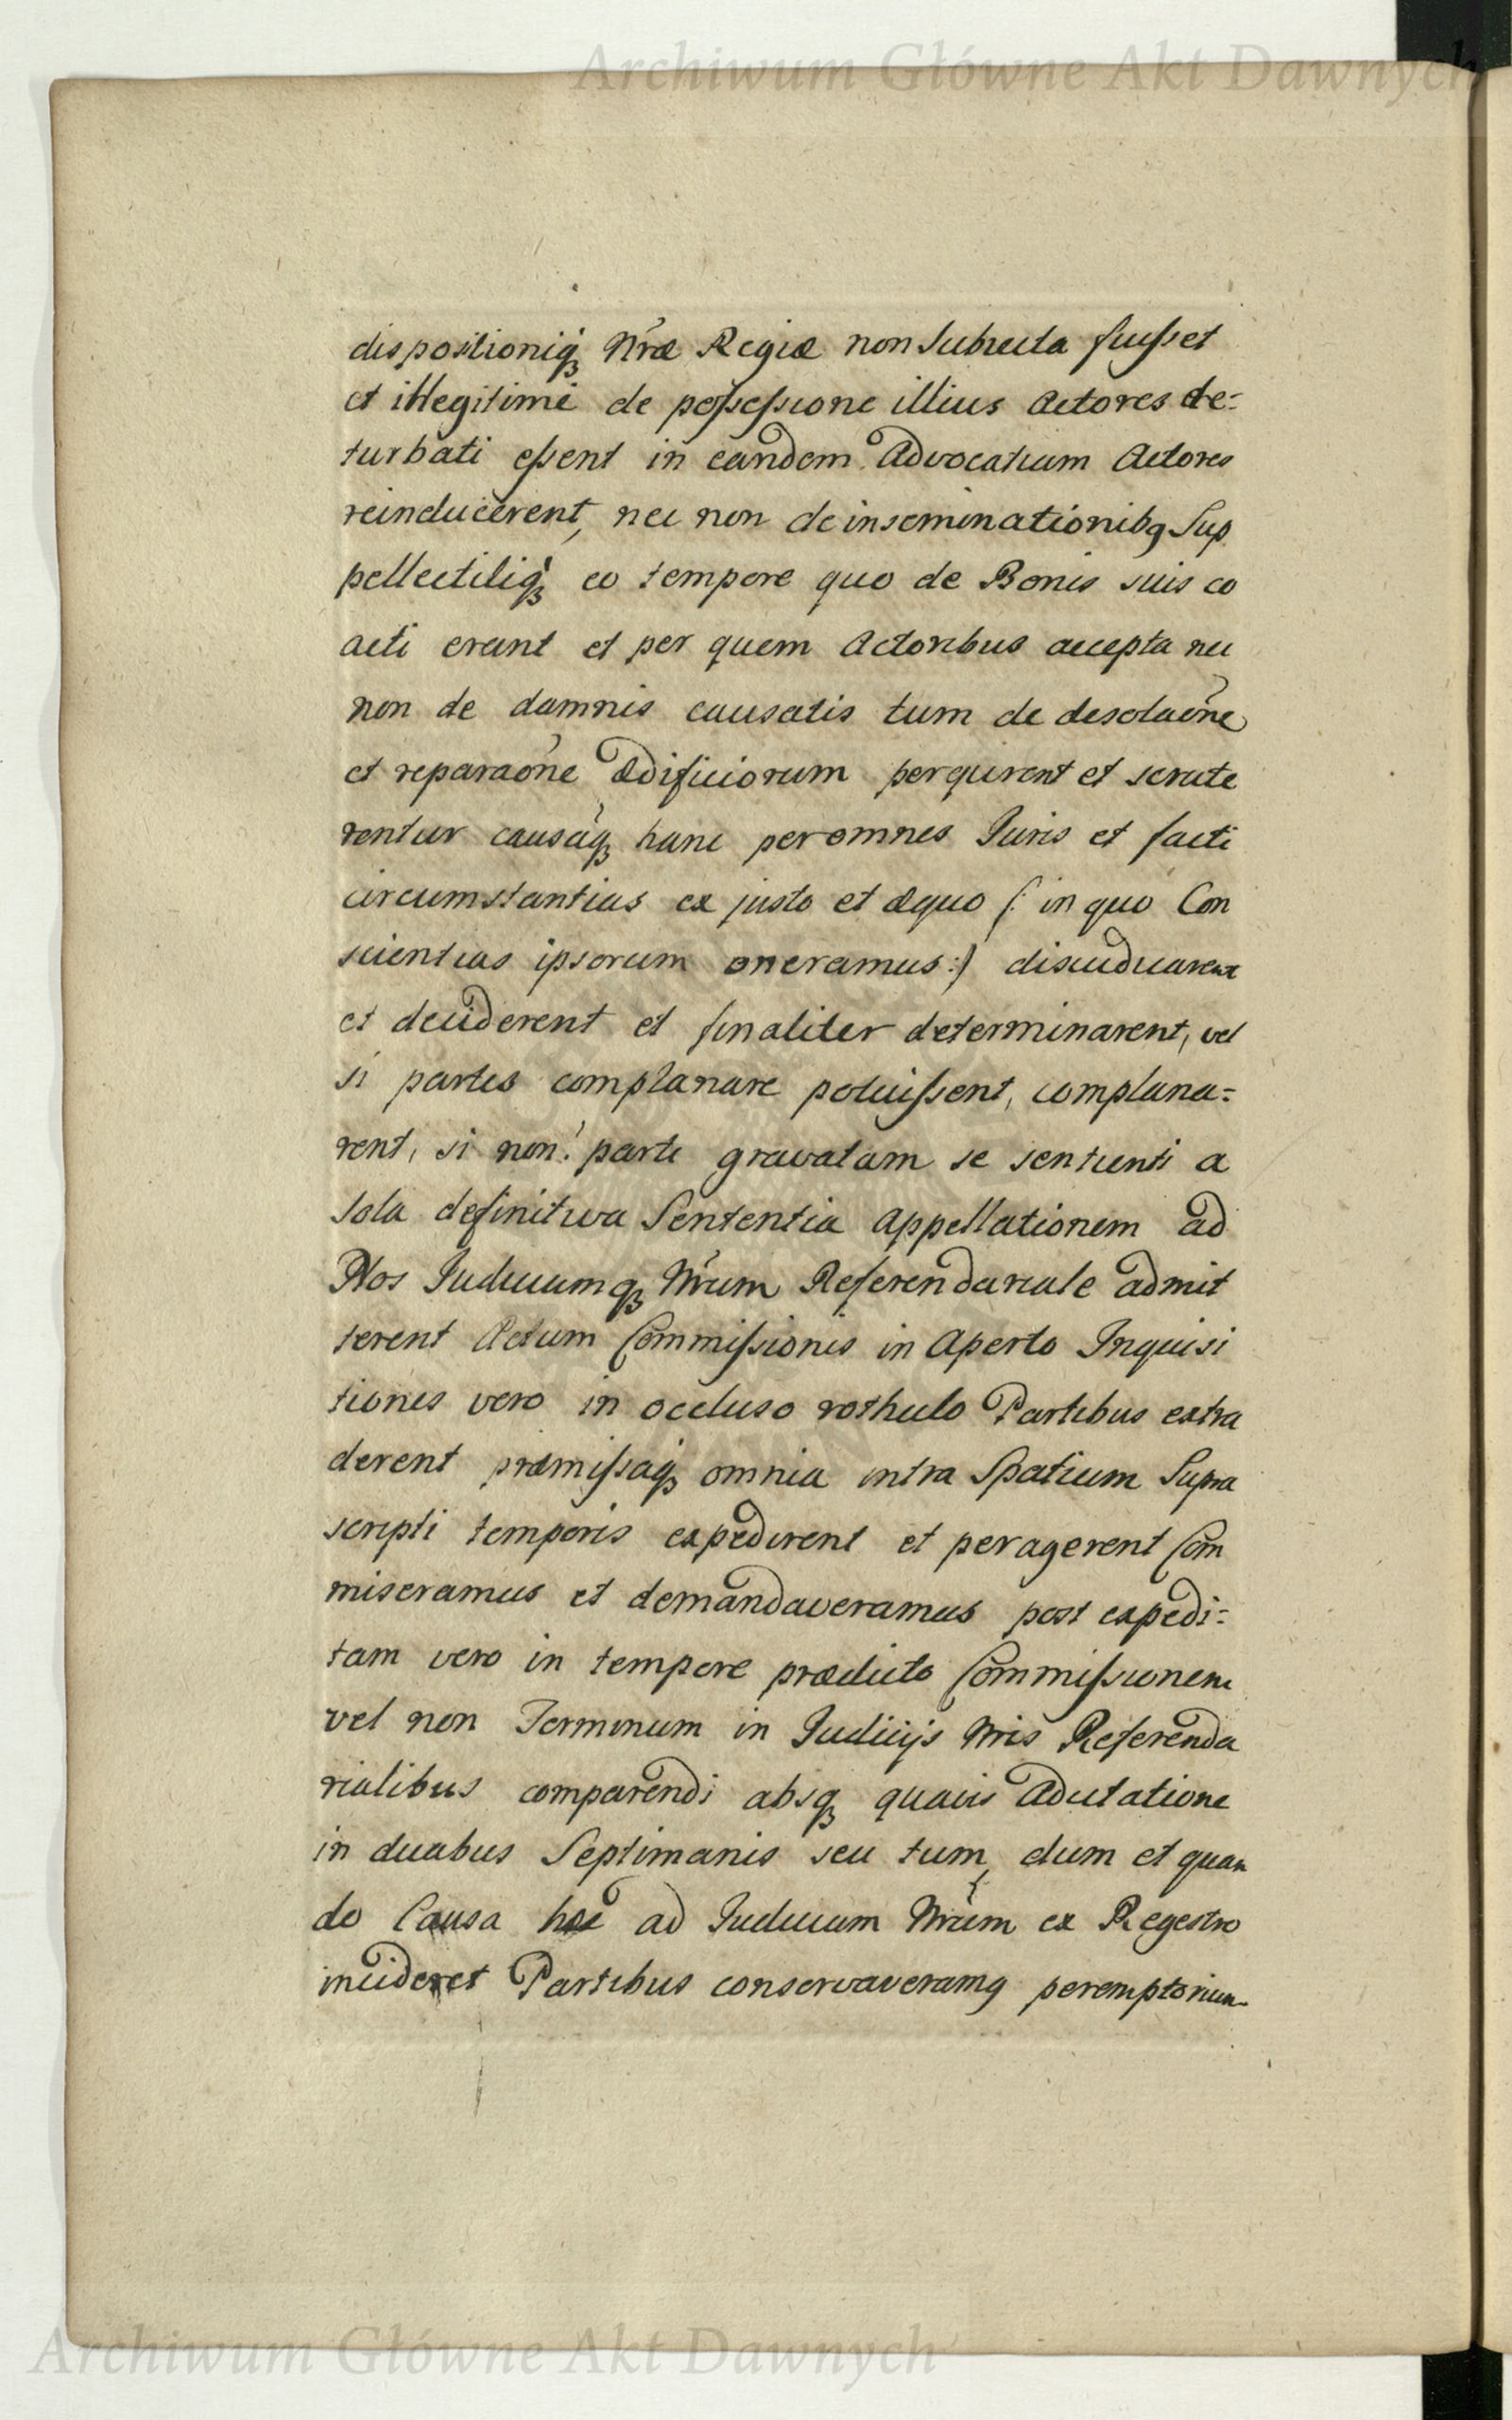 Archiwum Główne Akt Dawnych
dispositioniq́ꝫ Nr̃æ Regiæ non Subiecta fuisset
et illegitime de possessione illius Actores de=
turbati essent in eandem Advocatiam Actores
reinducerent, nec non de inseminationibq Sup
pellectiliq́ꝫ eo tempore quo de Bonis suis co
acti erant et per quem Actoribus accepta nec
non de damnis causatis tum de desolaõne
et reparaõne Ædificiorum perquirent et scrute
rentur causáqꝫ hanc per omnes Juris et facti
circumstantias ex justo et æquo (: in quo Con
scientias ipsorum oneramus :) disiudicarent
et deciderent et finaliter determinarent, vel
si partes complanare potuissent, complana=
rent, si non: parti gravatam se sentienti a
sola definitiva Sententia Appellationem ad
Nos Judiciumqꝫ Nr̃um Referendariale admit
terent Actum Commissionis in Aperto Inquisi
tiones vero in occluso rothulo Partibus extra
derent præmissaq́ꝫ omnia intra Spatium Supra
scripti temporis expedirent et peragerent Com
miseramus et demandaveramus post expedi=
tam vero in tempore prædicto Commissionem
vel non Terminum in Judicijs Nris Referenda
rialibus comparendi absqꝫ quavis Adcitatione
in duabus Septimanis seu tum, dum et quan
do Causa hæc ad Judicium Nr̃um ex Regestro
incideret Partibus conservaveramq peremptorium
Archiwum Główne Akt Dawnych